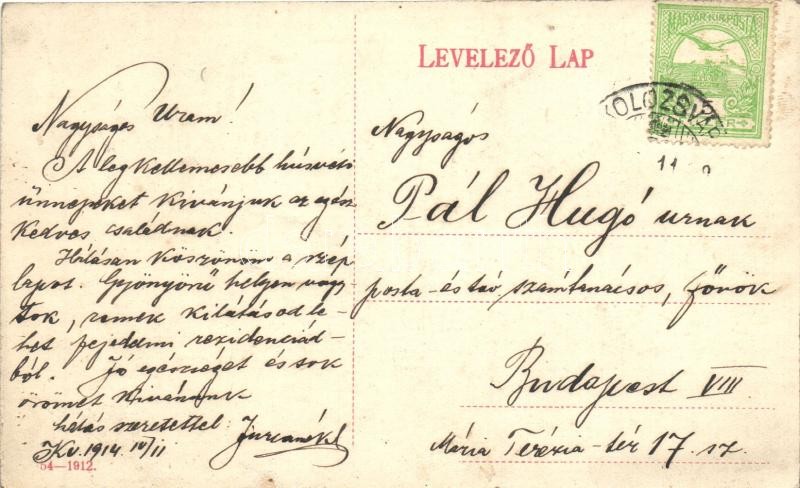 LEVELEZŐ LAP
MAGYAR KIR. POSTA
KOLOZSVÁR
Nagyságos Uram!
A legkellemesebb húsvéti
ünnepeket kivánjuk az egész
kedves családnak.
Hálásan köszönöm a szép
lapot. Gyönyörű helyen vagy-
tok, remek kilátásod le-
het fejedelmi rezidenciád-
ból. Jó egészséget és sok
örömet kivánunk
hálás szeretettel
Kv. 1914 IV/11
54—1912.
Nagyságos
Pál Hugó urnak
posta-és táv számtanácsos, főnök
Budapest VIII
Mária Terézia-tér 17. sz.